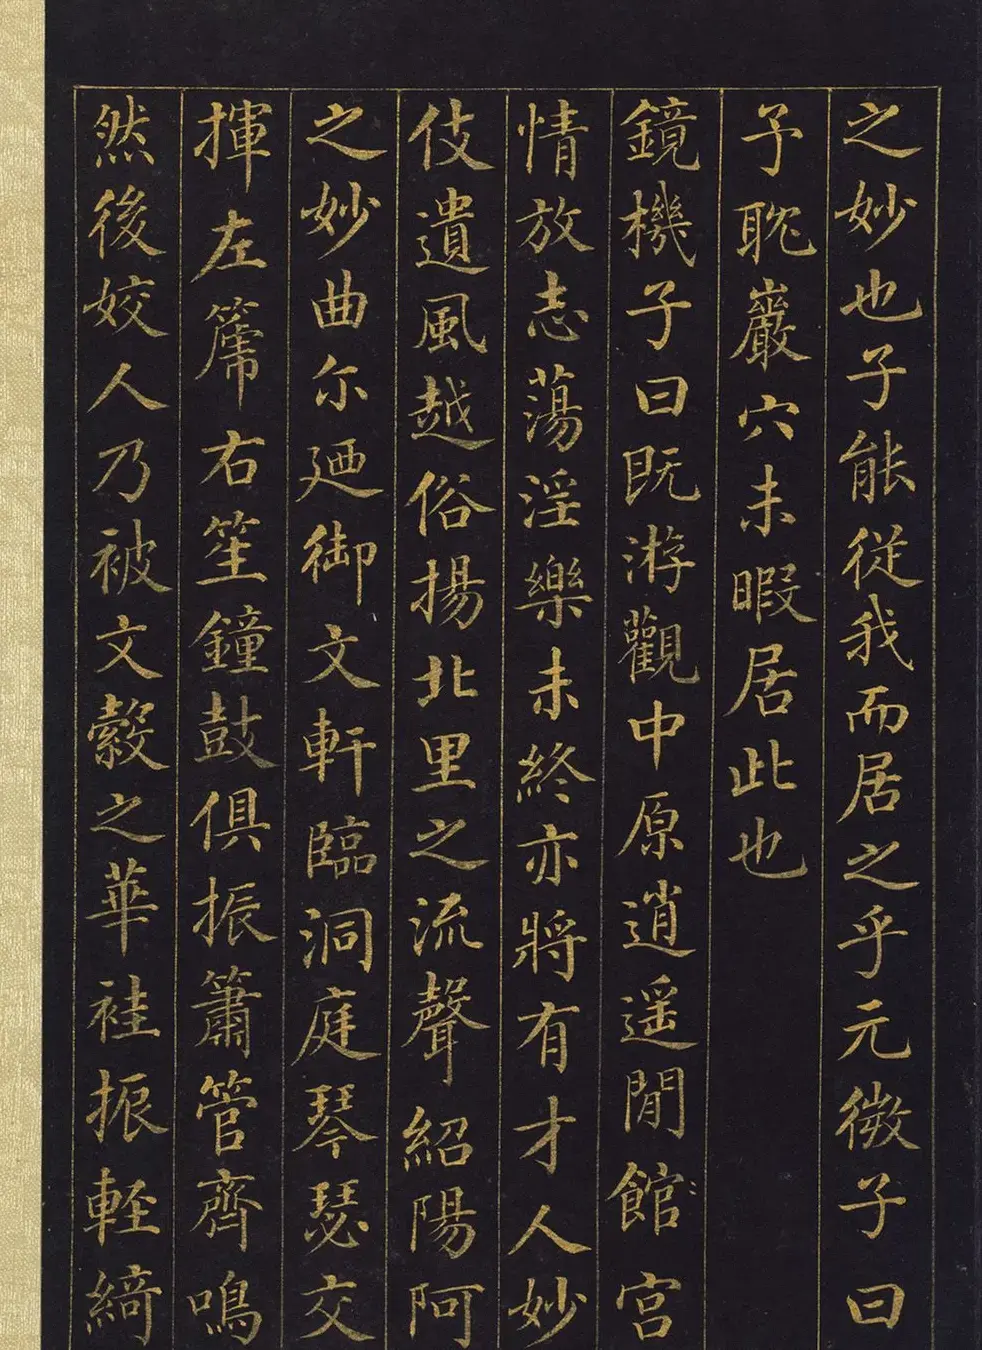 之妙也子能從我而居之乎元微子曰
予耽巖穴未暇居此也
鏡機子曰既游觀中原逍遥閒館宫
情放志蕩淫樂未終亦將有才人妙
伎遺風越俗揚北里之流聲紹陽阿
之妙曲尓廼御文軒臨洞庭琴瑟交
揮左篪右笙鐘鼓俱振簫管齊鳴
然後姣人乃被文縠之華袿振軽綺